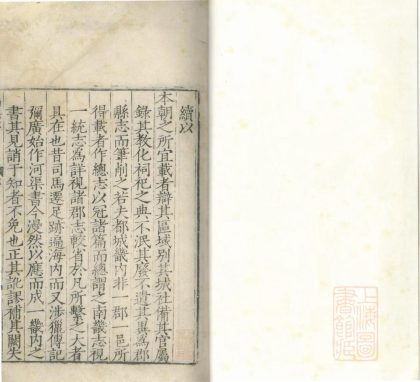 續以
本朝之所宜載者辯其區域別其城社備其官屬
錄其教化祠祀之典不泯其廢不遺其異爲郡
縣志而筆削之若夫都城畿内非一郡一邑所
得載者作總志以冠諸篇而總謂之南畿志視
一統志爲詳視諸郡志較省於凡所繫之大者
具在也昔司馬遷足跡遍海内而又涉獵傳記
彌廣始作河渠書今漫然以應而成一畿内之
書其見誚于知者不免也正其訛謬補其闕失
上海圖書館藏